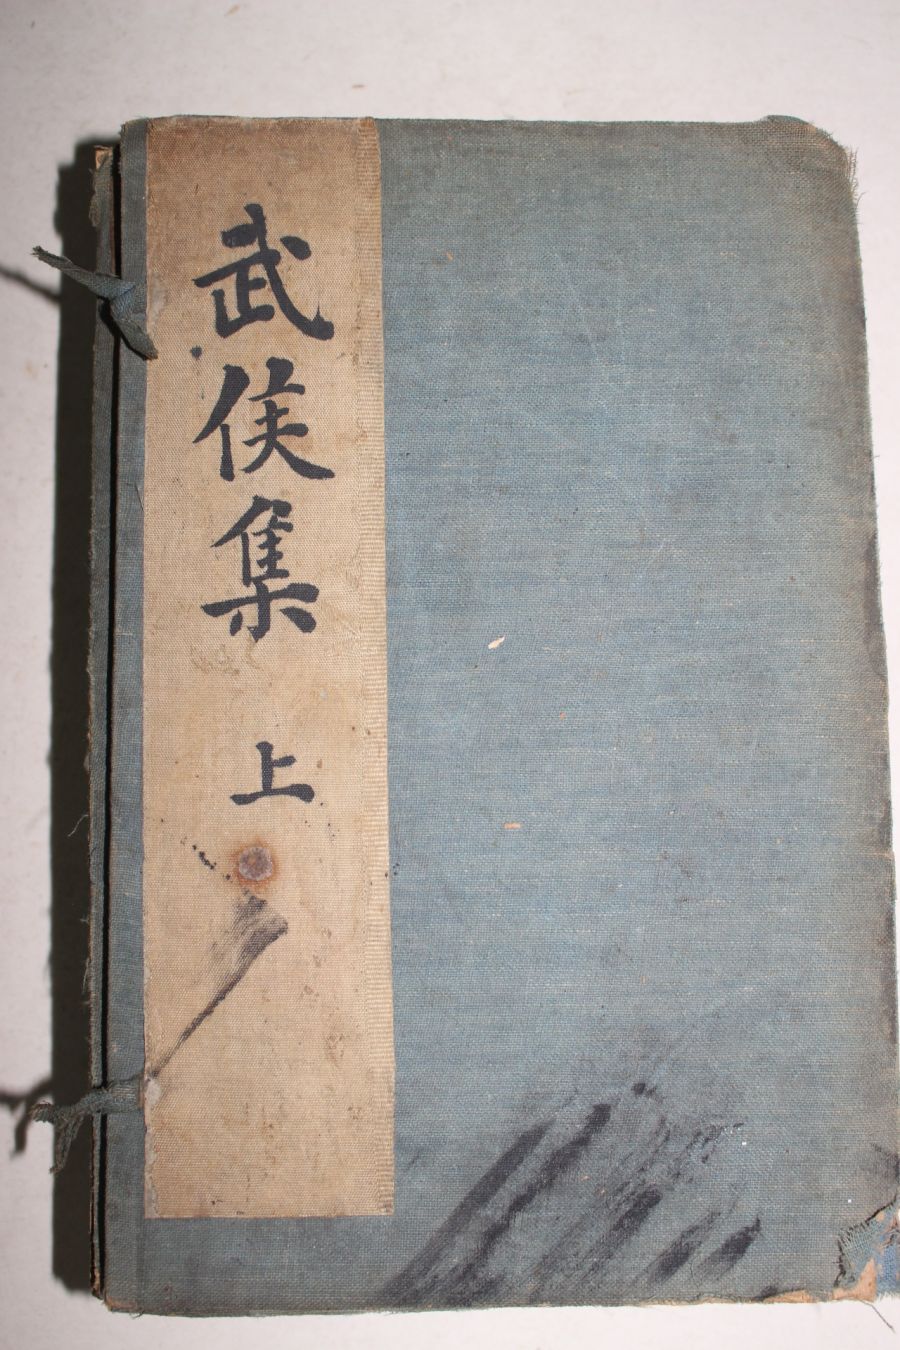 武侯集 上